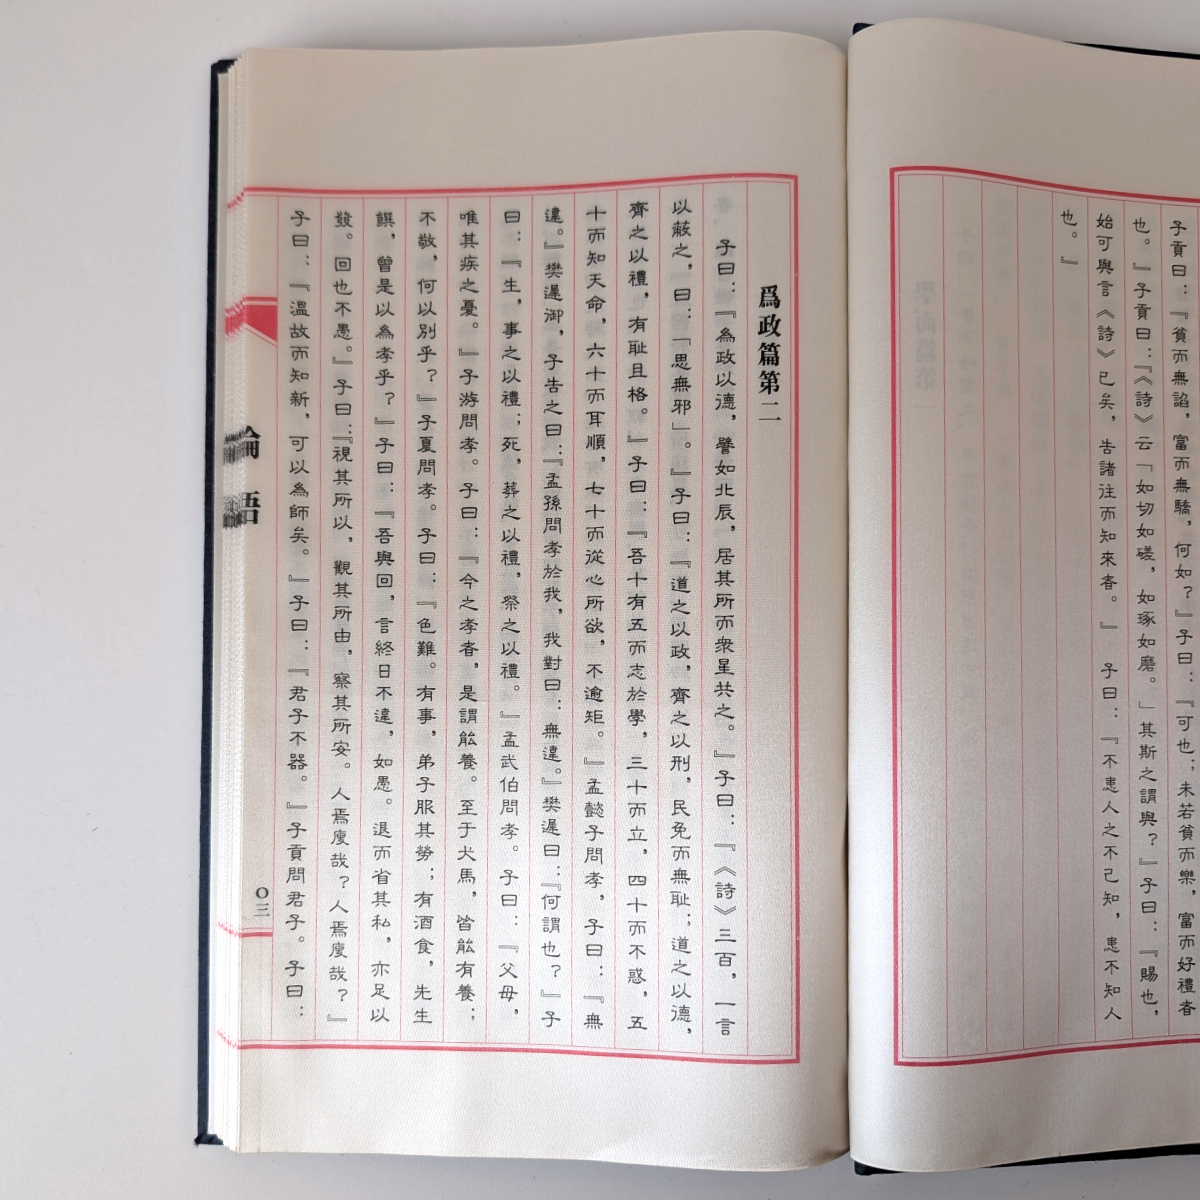 子貢曰：『貧而無諂，富而無驕，何如？』子曰：『可也；未若貧而樂，富而好禮者
也。』子貢曰：『《詩》云「如切如磋，如琢如磨。」其斯之謂與？』子曰：『賜也，
始可與言《詩》已矣，告諸往而知來者。』　子曰：『不患人之不己知，患不知人
也。』
爲政篇第二
子曰：『為政以德，譬如北辰，居其所而衆星共之。』子曰：『《詩》三百，一言
以蔽之，曰：「思無邪」。』子曰：『道之以政，齊之以刑，民免而無恥；道之以德，
齊之以禮，有耻且格。』子曰：『吾十有五而志於學，三十而立，四十而不惑，五
十而知天命，六十而耳順，七十而從心所欲，不逾矩。』孟懿子問孝，子曰：『無
違。』樊遲御，子告之曰：『孟孫問孝於我，我對曰：無違。』樊遲曰：『何謂也？』子
曰：『生，事之以禮；死，葬之以禮，祭之以禮。』孟武伯問孝。子曰：『父母，
唯其疾之憂。』子游問孝。子曰：『今之孝者，是謂能養。至于犬馬，皆能有養；
不敬，何以別乎？』子夏問孝。子曰：『色難。有事，弟子服其勞；有酒食，先生
饌，曾是以為孝乎？』子曰：『吾與回，言終日不違，如愚。退而省其私，亦足以
發。回也不愚。』子曰：『視其所以，觀其所由，察其所安。人焉廋哉？人焉廋哉？』
子曰：『溫故而知新，可以為師矣。』子曰：『君子不器。』子貢問君子。子曰：
論語
〇三